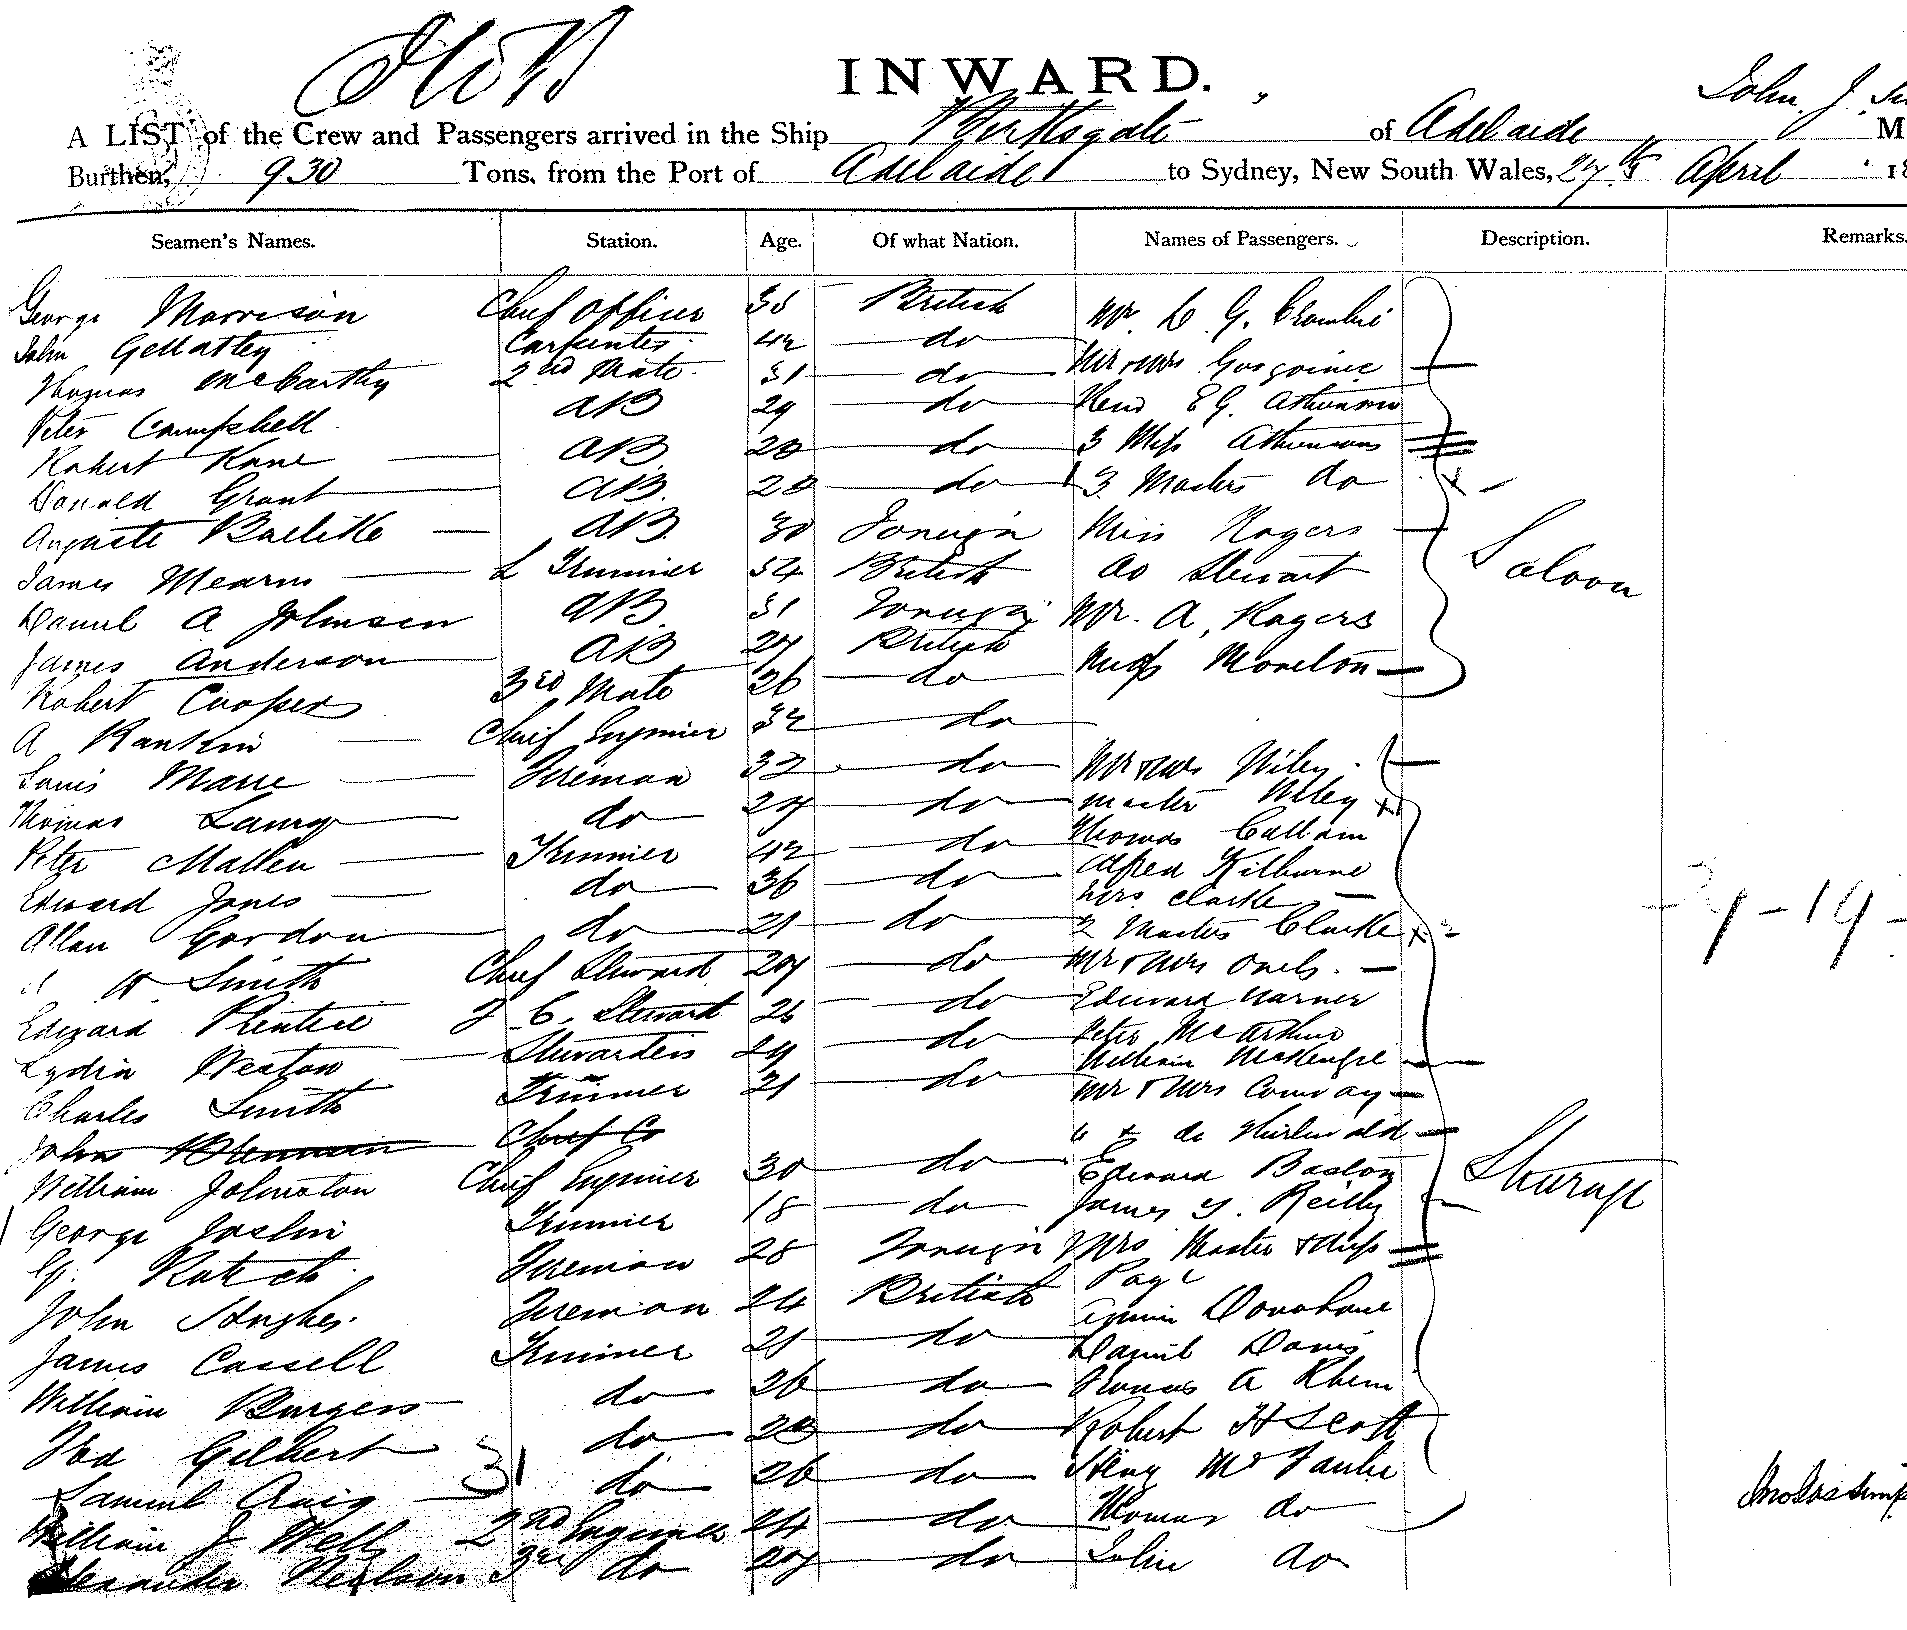 INWARD.
John. J.
A LIST of the Crew and Passengers arrived in the Ship of Adelaide M
Burthen, 930 Tons, from the Port of Adelaide to Sydney, New South Wales, 27th April 18
Seamen's Names. Station. Age. Of what Nation. Names of Passengers. Description. Remarks.
George Morrison Chief Officer British Mr. G. Crombie
John Gellatley Carpenter 42 do Mr & Mrs Gasgoine
Thomas McCarthy 2nd Mate 31 do E G. Atkinson
Peter Campbell AB 29 do 3 Miss Atkinsons
Robert Kane AB 28 do 3 Masters do
Donald Grant AB. 28 do
Auguste AB. 30 Foreign Miss Rogers
James Mearns Trimmer 54 British do Stewart
Saloon
Daniel A Johnson AB. 31 Foreign Mr. A. Rogers
James Anderson AB 27 British Miss Moreton
Robert Cooper 3rd Mate 26 do
A Rankin Chief Engineer 32 do
Louis Marre Fireman 32 do Mr & Mrs Wiley
Thomas Laing do 27 do Master Wiley
Peter Mallen Trimmer 42 do Thomas Callam
Edward Jones do 36 do Alfred Kilburne
Mrs. Clarke
Allan Gordon do 21 do 2 Masters Clarke
Smith Chief Steward 27 do Mr & Mrs
Edward Prentice C. Steward 26 do Edward Warner
Lydia Weston Stewardess 29 do Peter McArthur
William McKenzie
Charles Smith Trimmer 21 do Mr & Mrs Conway
John Brennan Chief Co
William Johnston Chief Engineer 30 do Edward Baston
Steerage
George Joslin Trimmer 18 do James Reilly
G. Fireman 28 Foreign Mrs Master & Miss
Page
John Hughes. Fireman 24 British Donohoue
James Cassell Trimmer 21 do Daniel Davis
William Burgess do 26 do Thomas A Rhem
Gilbert do 28 do Robert H Scott
31
Samuel Craig do 26 do
William J Wells 2nd Engineer 24 do Thomas do
Alexander 3rd do 27 do John do